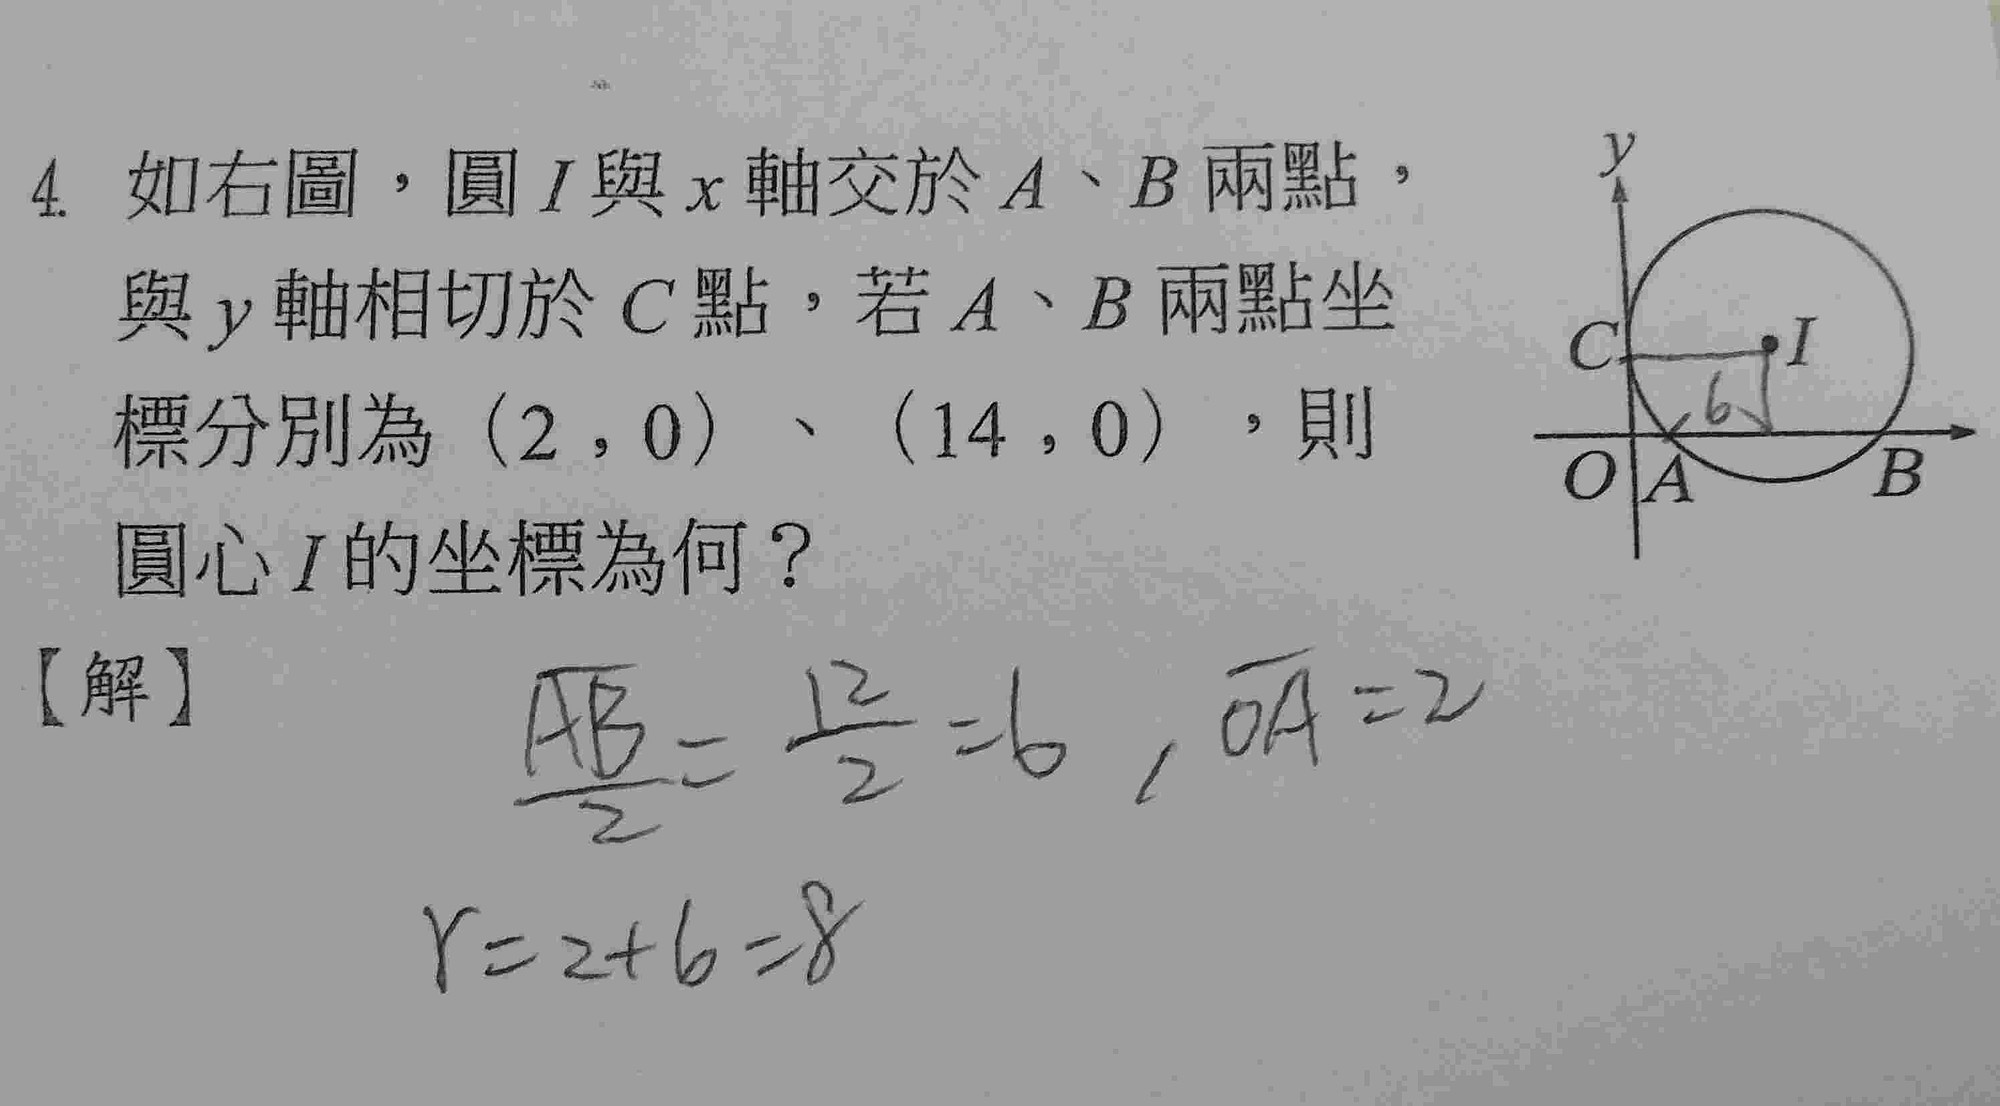 4. 如右圖，圓 I 與 x 軸交於 A、B 兩點，
與 y 軸相切於 C 點，若 A、B 兩點坐
標分別為（2，0）、（14，0），則
圓心 I 的坐標為何？
y
C I
6
O A B
【解】
AB/2 = 12/2 = 6 , OA = 2
r = 2+6 = 8